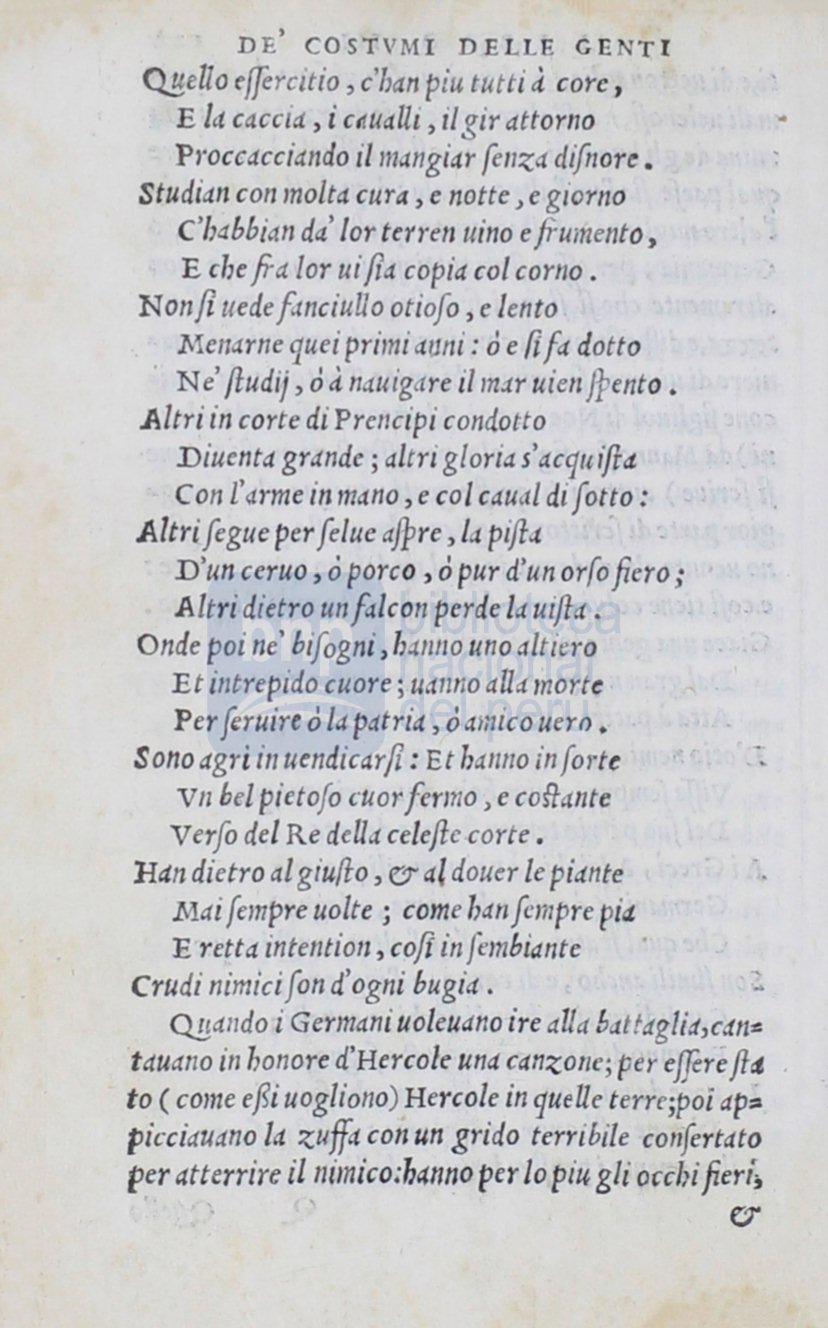 DE' COSTVMI DELLE GENTI
Quello eſſercitio, c'han piu tutti à core,
E la caccia, i caualli, il gir attorno
Proccacciando il mangiar ſenza diſnore.
Studian con molta cura, e notte, e giorno
C'habbian da' lor terren uino e frumento,
E che fra lor ui ſia copia col corno.
Non ſi uede fanciullo otioſo, e lento
Menarne quei primi anni: ò e ſi fa dotto
Ne' ſtudij, ò à nauigare il mar uien ſpento.
Altri in corte di Prencipi condotto
Diuenta grande; altri gloria s'acquiſta
Con l'arme in mano, e col caual di ſotto:
Altri ſegue per ſelue aſpre, la piſta
D'un ceruo, ò porco, ò pur d'un orſo fiero;
Altri dietro un falcon perde la uiſta.
Onde poi ne' biſogni, hanno uno altiero
Et intrepido cuore; uanno alla morte
Per ſeruire ò la patria, ò amico uero.
Sono agri in uendicarſi: Et hanno in ſorte
Vn bel pietoſo cuor fermo, e coſtante
Verſo del Re della celeſte corte.
Han dietro al giuſto, & al douer le piante
Mai ſempre uolte; come han ſempre pia
E retta intention, coſi in ſembiante
Crudi nimici ſon d'ogni bugia.
Quando i Germani uoleuano ire alla battaglia, can=
tauano in honore d'Hercole una canzone; per eſſere ſta
to (come eßi uogliono) Hercole in quelle terre; poi ap=
picciauano la zuffa con un grido terribile conſertato
per atterrire il nimico: hanno per lo piu gli occhi fieri,
&
biblioteca
nacional
del perú